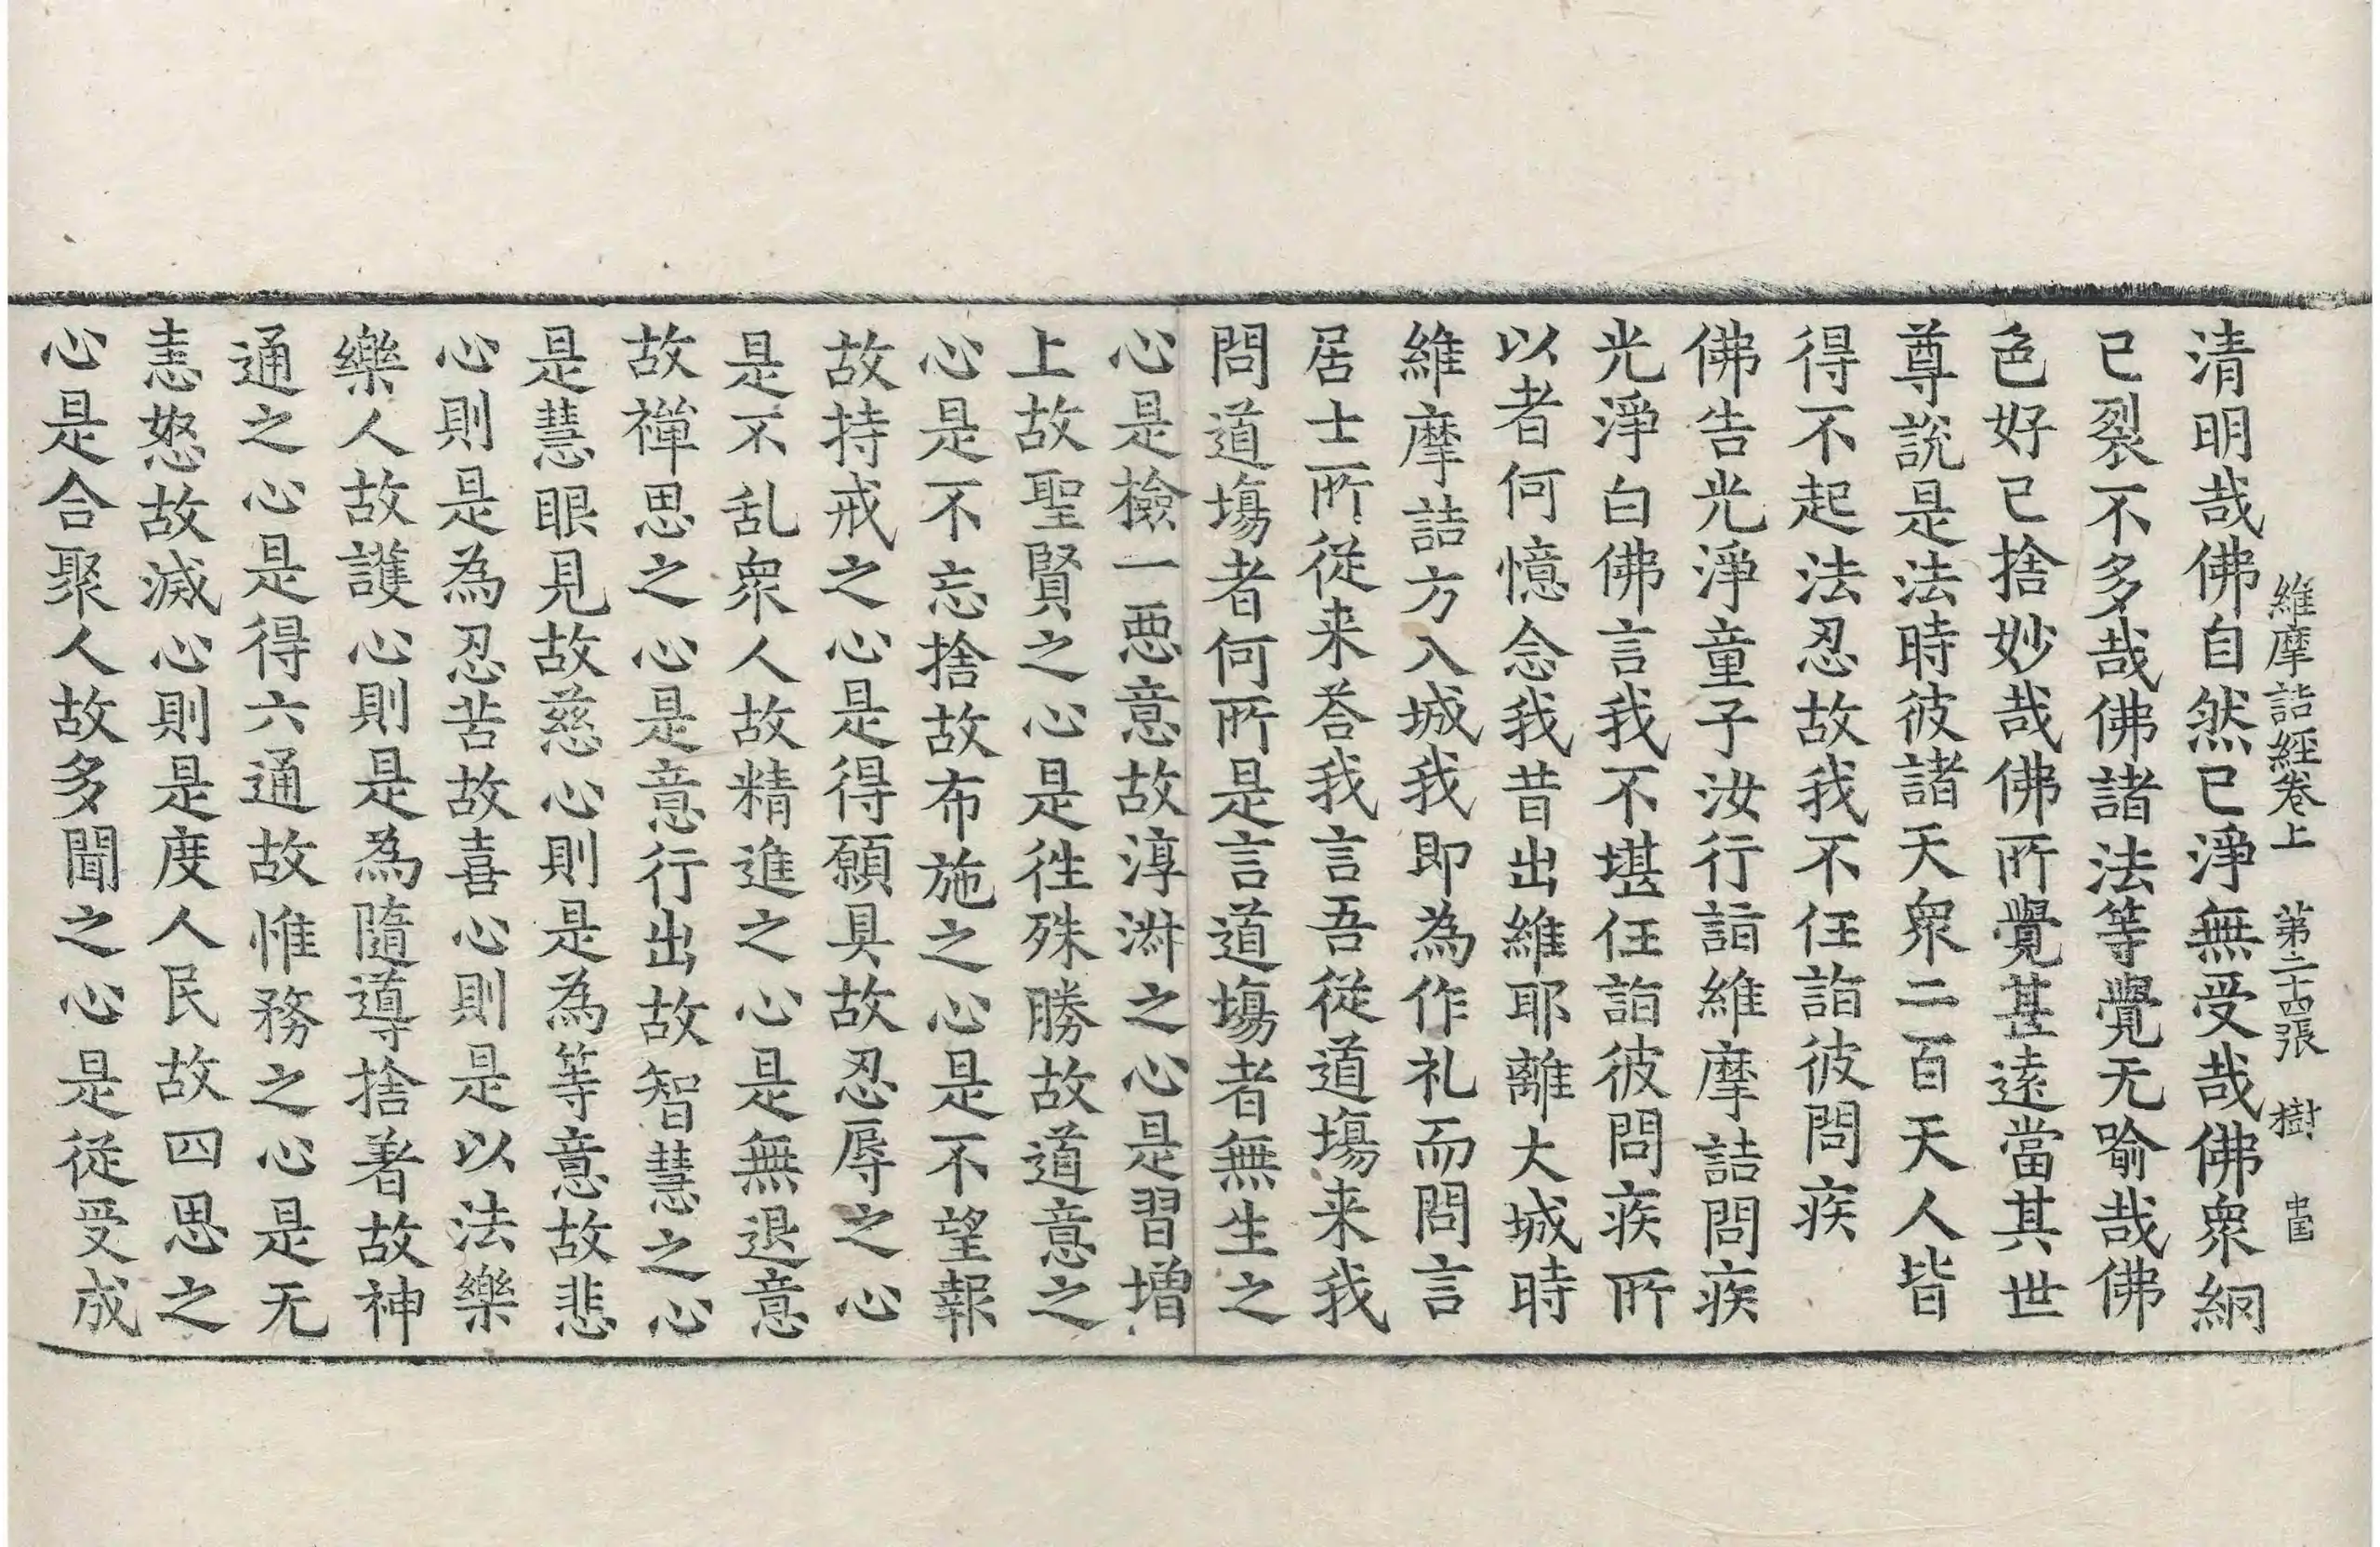 維摩詰經卷上 第二十四張 樹
清明哉佛自然已淨無受哉佛衆網
已裂不多哉佛諸法等覺无喻哉佛
色好已捨妙哉佛所覺甚遠當其世
尊説是法時彼諸天衆二百天人皆
得不起法忍故我不任詣彼問疾
佛告光淨童子汝行詣維摩詰問疾
光淨白佛言我不堪任詣彼問疾所
以者何憶念我昔出維耶離大城時
維摩詰方入城我即為作礼而問言
居士所從来荅我言吾從道場来我
問道場者何所是言道場者無生之
心是撿一惡意故淳淑之心是習增
上故聖賢之心是往殊勝故道意之
心是不忘捨故布施之心是不望報
故持戒之心是得願具故忍辱之心
是不乱衆人故精進之心是無退意
故禪思之心是意行出故智慧之心
是慧眼見故慈心則是為等意故悲
心則是為忍苦故喜心則是以法樂
樂人故護心則是為隨導捨著故神
通之心是得六通故惟務之心是无
恚怒故滅心則是度人民故四思之
心是合聚人故多聞之心是從受成